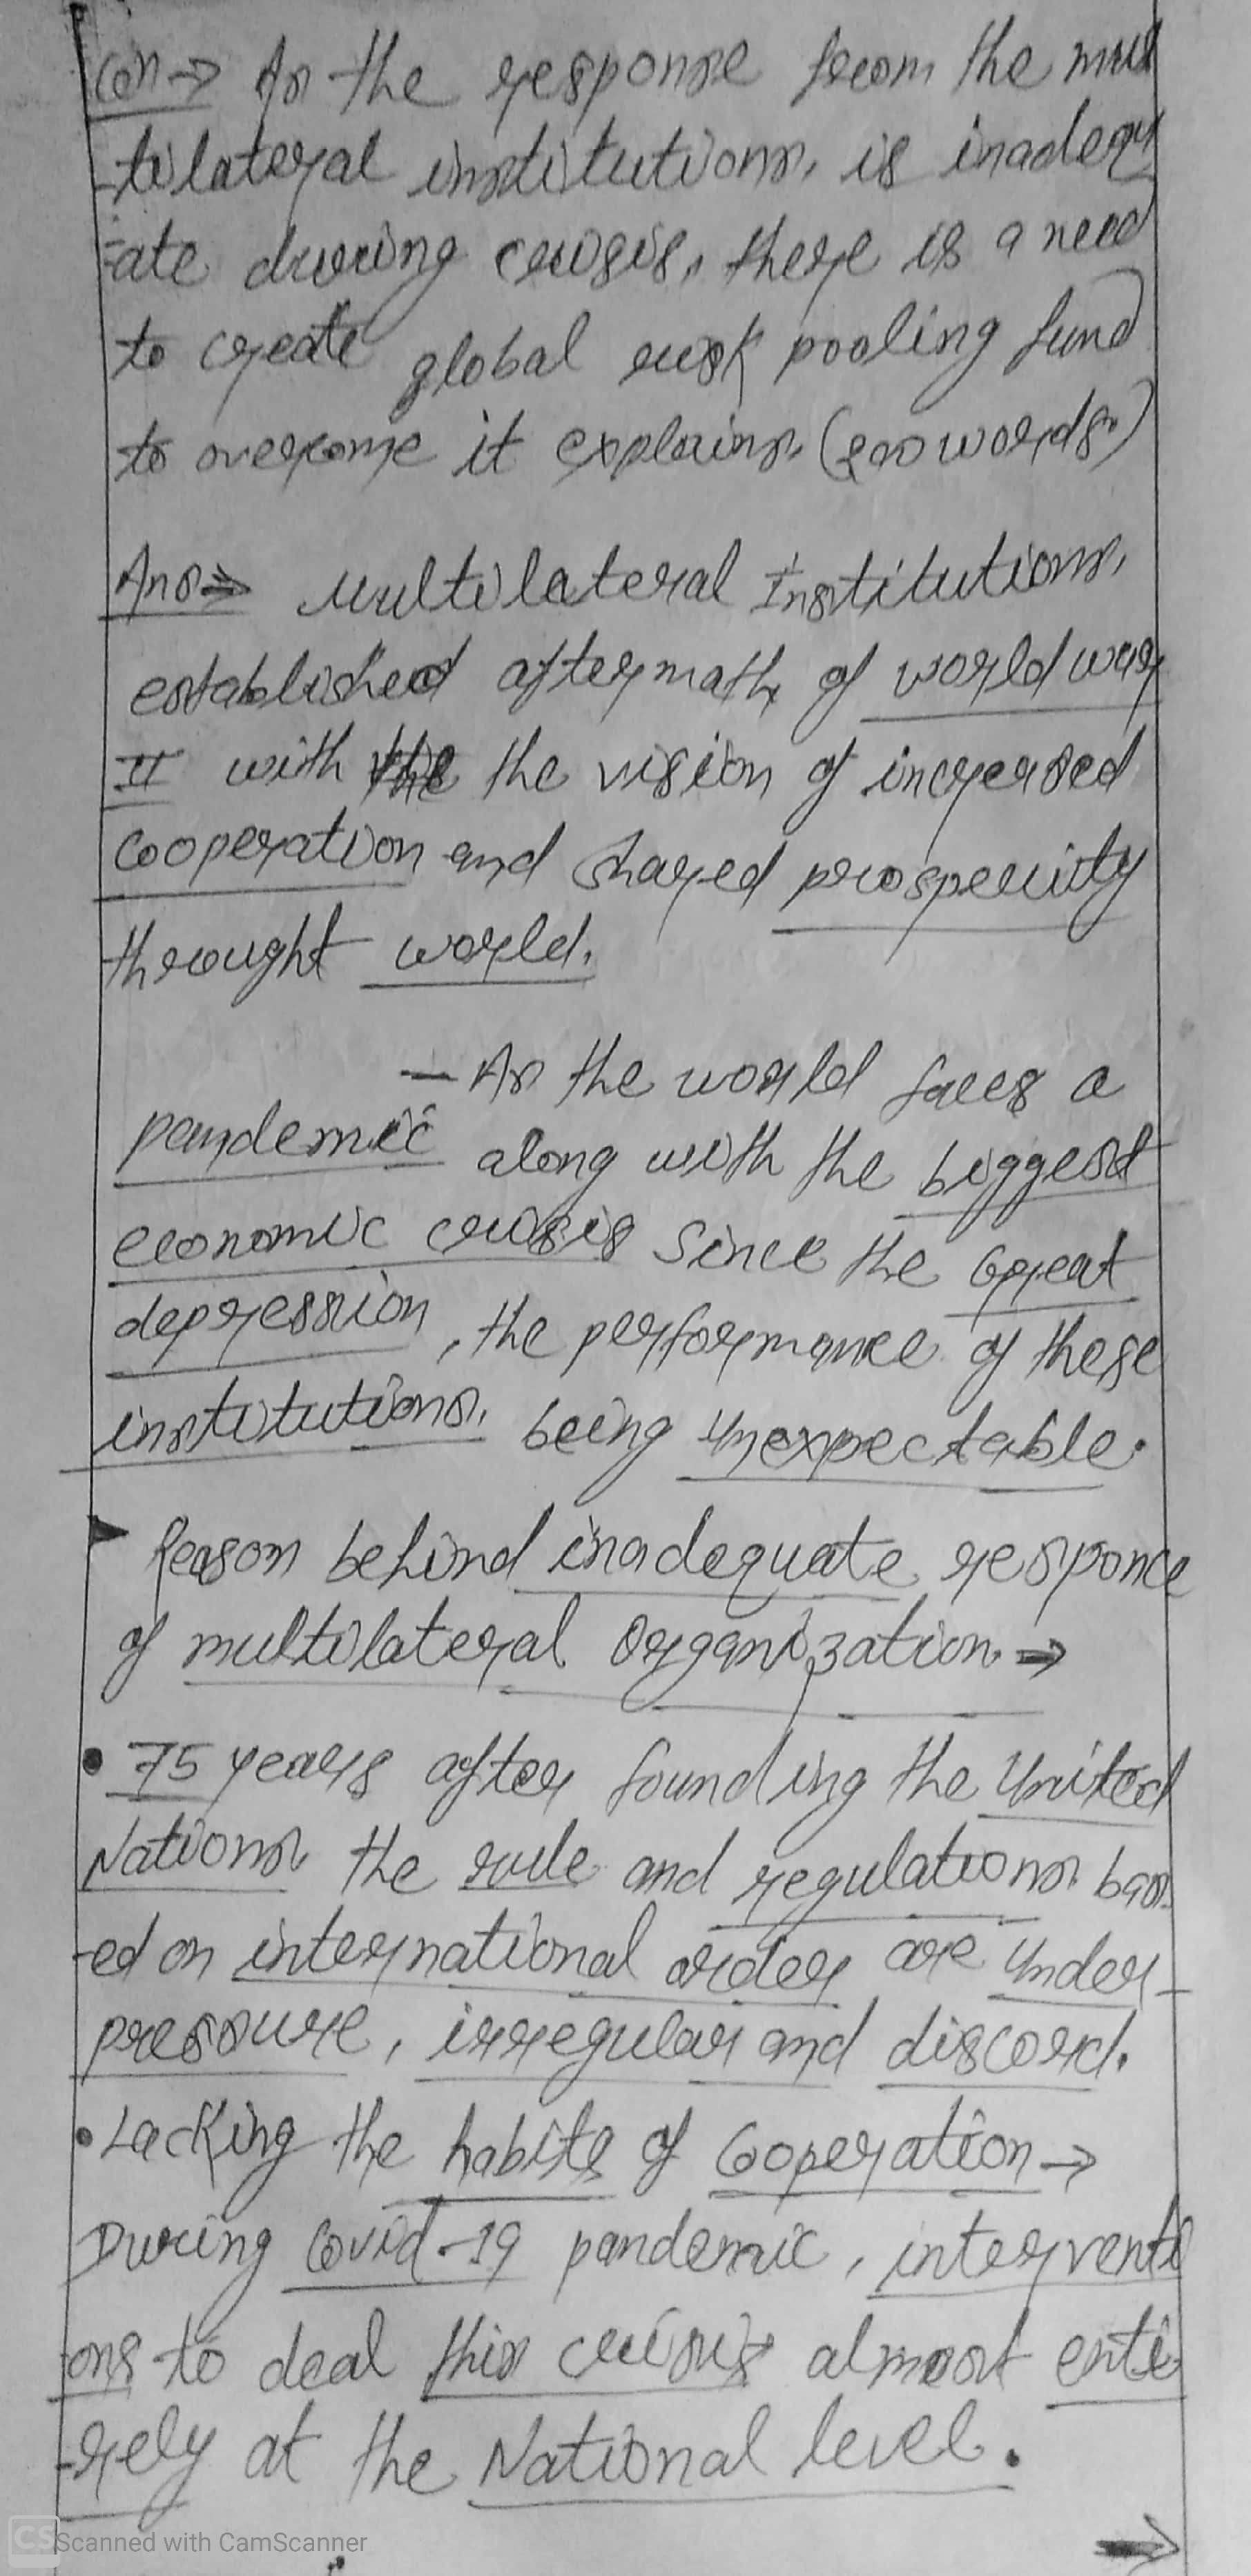 Qn → As the response from the mul
-tilateral institutions, is inadequ
-ate during crisis, there is a need
to create global risk pooling fund
to overcome it explains. (200 words.)
Ans ⇒ Multilateral Institutions,
established aftermath of world war
II with the the vision of increased
cooperation and shared prosperity
throught world.
- As the world faces a
pandemic along with the biggest
economic crisis since the Great
depression, the performance of these
institutions, being unexpectable.
▸ Reason behind inadequate responce
of multilateral Organization →
• 75 years after founding the United
Nations the rule and regulations bas
-ed on international order are under
pressure, irregular and discord.
• Lacking the habits of Cooperation →
During Covid-19 pandemic, interventi
ons to deal this crisis almost enti
-rely at the National level.
→
CS Scanned with CamScanner